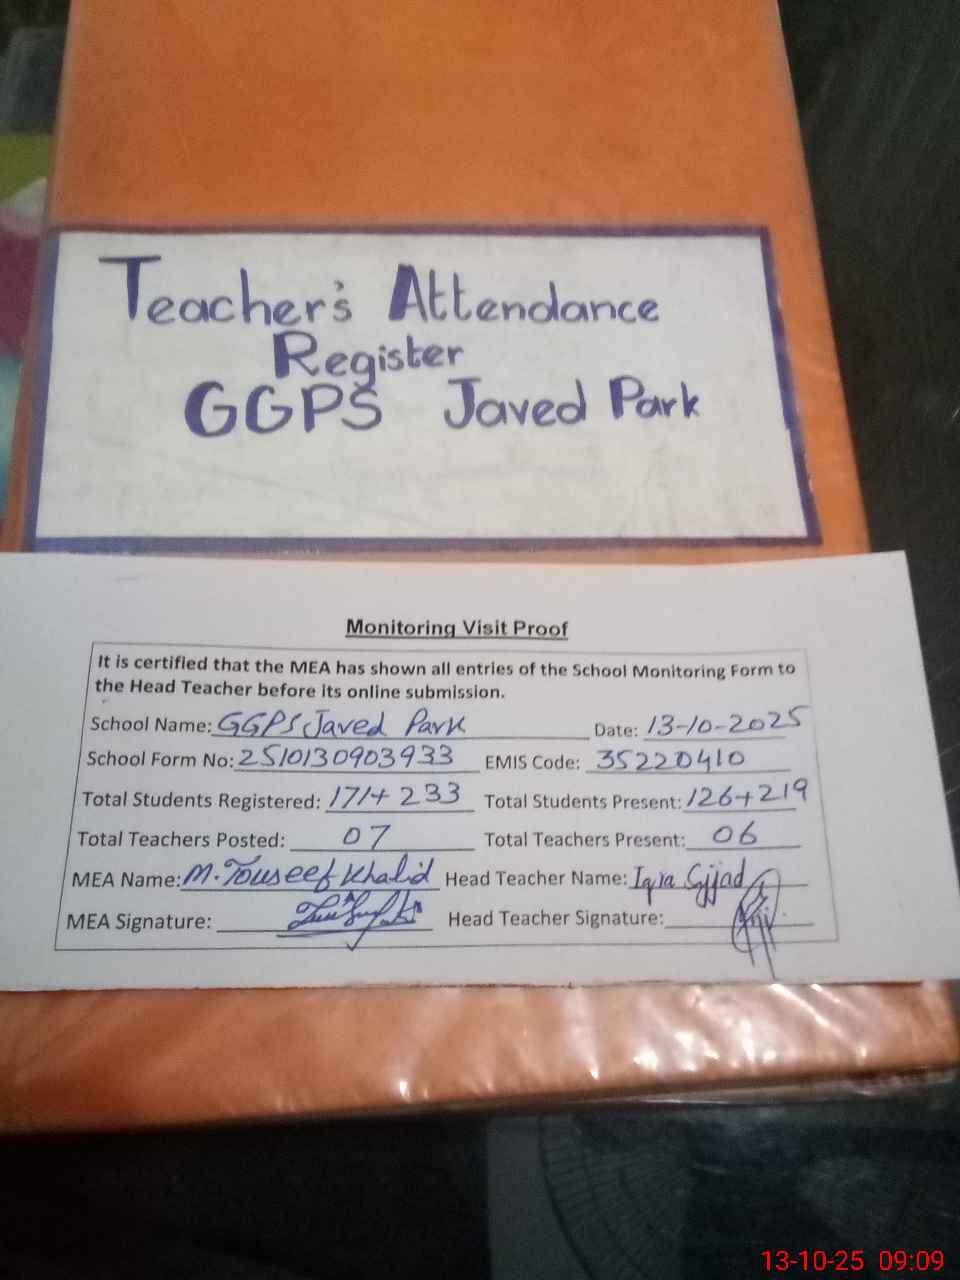 Teacher's Attendance
Register
GGPS Javed Park
Monitoring Visit Proof
It is certified that the MEA has shown all entries of the School Monitoring Form to
the Head Teacher before its online submission.
School Name: GGPS Javed Park Date: 13-10-2025
School Form No: 2510130903933 EMIS Code: 35220410
Total Students Registered: 171+233 Total Students Present: 126+219
Total Teachers Posted: 07 Total Teachers Present: 06
MEA Name: M. Touseef Khalid Head Teacher Name: Iqra
MEA Signature: Head Teacher Signature:
13-10-25 09:09